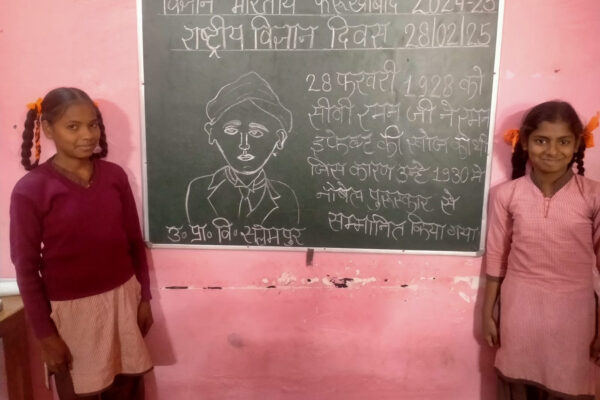 विज्ञान भारतीय फर्रूखाबाद 2024-25
राष्ट्रीय विज्ञान दिवस 28/02/25
28 फरवरी 1928 को
सीवी रमन जी ने रमन
इफेक्ट की खोज की थी
जिस कारण उन्हे 1930 मे
नोबेल पुरस्कार से
सम्मानित किया गया
उ॰ प्रा॰ वि॰ सलेमपुर